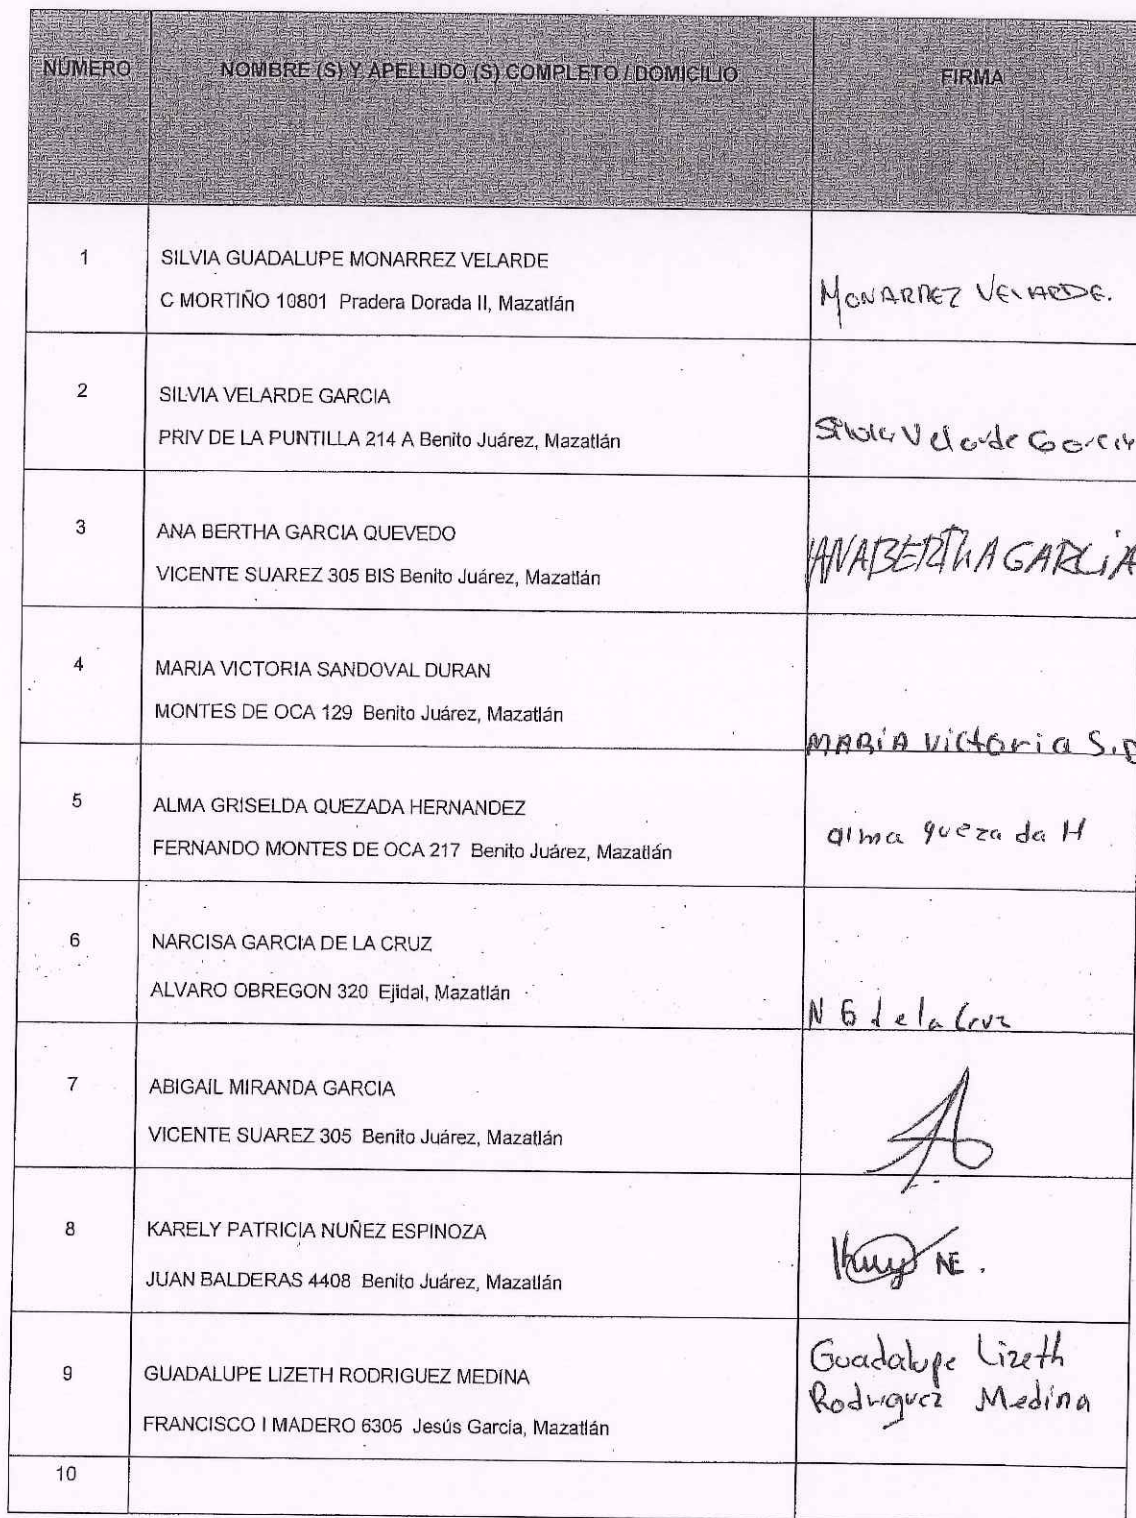 NUMERO NOMBRE (S) Y APELLIDO (S) COMPLETO / DOMICILIO FIRMA
1 SILVIA GUADALUPE MONARREZ VELARDE
C MORTIÑO 10801 Pradera Dorada II, Mazatlán MONARREZ VELARDE.
2 SILVIA VELARDE GARCIA
PRIV DE LA PUNTILLA 214 A Benito Juárez, Mazatlán Silvia Velarde Garcia
3 ANA BERTHA GARCIA QUEVEDO
VICENTE SUAREZ 305 BIS Benito Juárez, Mazatlán ANABERThA GARCiA
4 MARIA VICTORIA SANDOVAL DURAN
MONTES DE OCA 129 Benito Juárez, Mazatlán
MARiA Victoria S.D
5 ALMA GRISELDA QUEZADA HERNANDEZ
alma quezada H
FERNANDO MONTES DE OCA 217 Benito Juárez, Mazatlán
6 NARCISA GARCIA DE LA CRUZ
ALVARO OBREGON 320 Ejidal, Mazatlán
N G de la Cruz
7 ABIGAIL MIRANDA GARCIA
VICENTE SUAREZ 305 Benito Juárez, Mazatlán
8 KARELY PATRICIA NUÑEZ ESPINOZA
NE.
JUAN BALDERAS 4408 Benito Juárez, Mazatlán
Guadalupe Lizeth
9 GUADALUPE LIZETH RODRIGUEZ MEDINA
Rodriguez Medina
FRANCISCO I MADERO 6305 Jesús García, Mazatlán
10